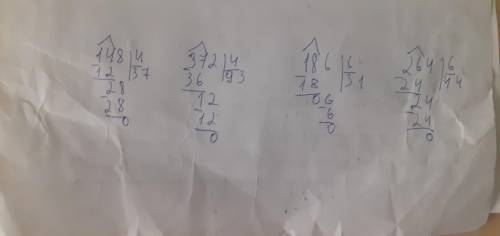 148 | 4
12 | 37
28
28
0
372 | 4
36 | 93
12
12
0
186 | 6
18 | 31
06
6
0
264 | 6
24 | 44
24
24
0